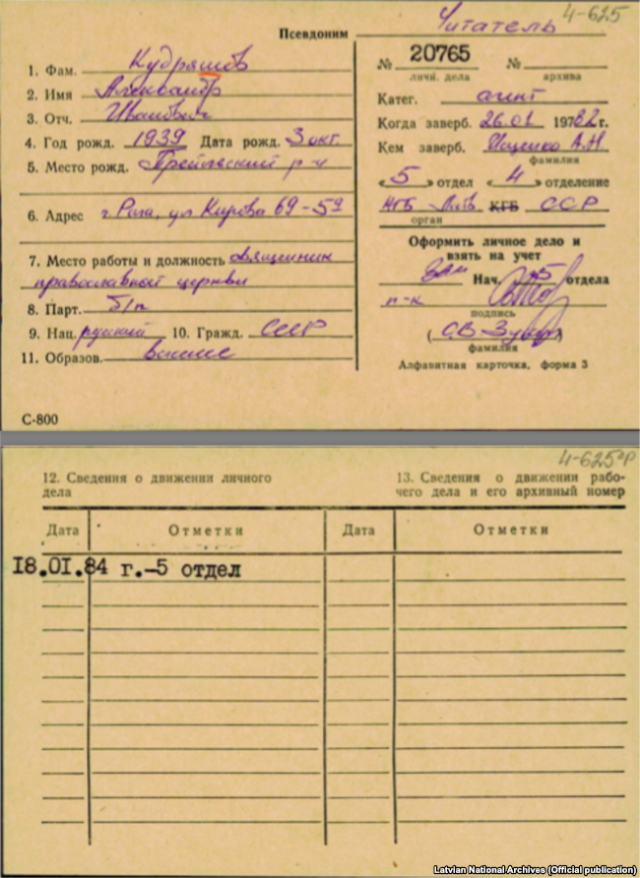 4-625
Псевдоним Читатель
1. Фам. Кудряшов
2. Имя Александр
3. Отч. Иванович
4. Год рожд. 1939 Дата рожд. 3 окт.
5. Место рожд. Прейльский р-н
6. Адрес г. Рига, ул. Кирова 69-59
7. Место работы и должность священник
православной церкви
8. Парт. б/п
9. Нац. русский 10. Гражд. СССР
11. Образов. высшее
С-800
№ 20765 №
личн. дела архива
Катег. агент
Когда заверб. 26.01 1982 г.
Кем заверб. А.Н
фамилия
«5» отдел «4» отделение
КГБ Латв. КГБ ССР
орган
Оформить личное дело и
взять на учет
Зам Нач. 5 отдела
п-к
подпись
(С.В. )
фамилия
Алфавитная карточка, форма 3
4-625
12. Сведения о движении личного
дела
13. Сведения о движении рабо-
чего дела и его архивный номер
Дата Отметки Дата Отметки
18.01.84 г.-5 отдел
Latvian National Archives (Official publication)